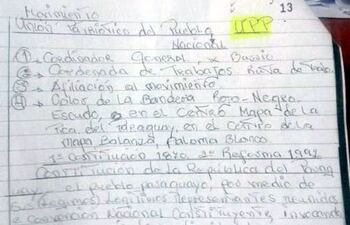 Movimiento 13
Union Patriótico del Pueblo UPP
Nacional
① Cordinador General, x Barrio
② Cordenada de Trabajos
③ Afiliación al movimiento
④ Color de la Bandera Rojo-Negro
Escudo, en el Centro Mapa de la
Rca. del Paraguay, en el Centro de la
Mapa Balanza, Paloma Blanca
1ª Constitucion 1870 2ª Reforma 1992
Constitución de la República del Parag
uay. el pueblo paraguayo, por medio de
Legitimos Representantes reunidos
e convención Nacional Constituyente, invocando